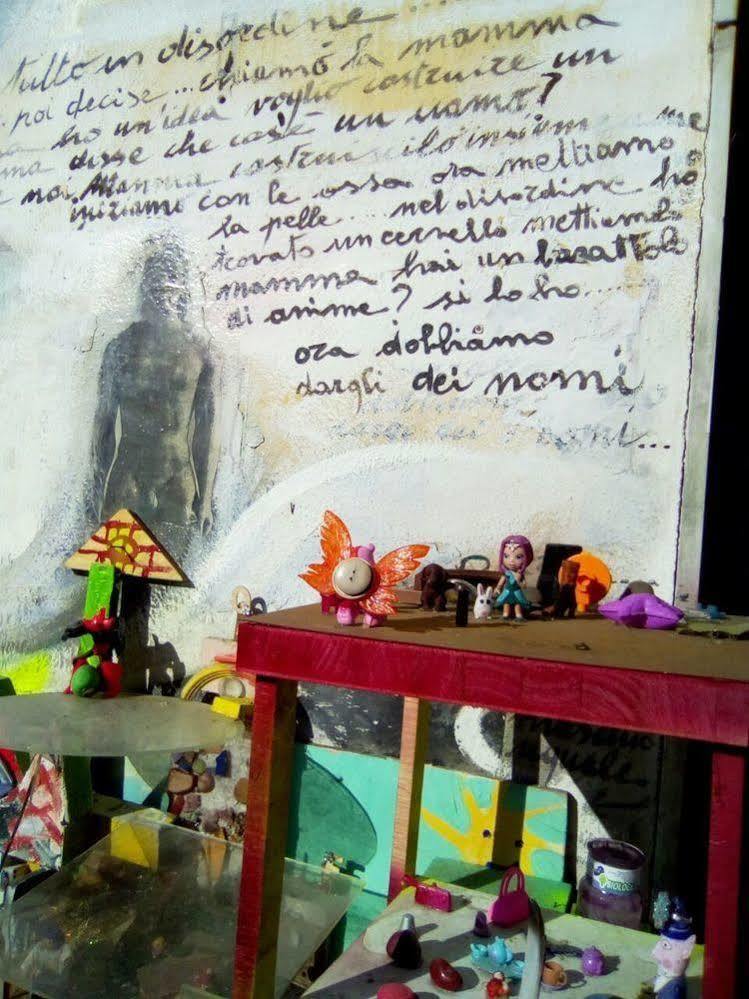 tutto in disordine ...
. poi decise... chiamó la mamma
ho un'idea voglio costruire un
ma disse che cos'è un uomo?
noi. Mamma costruiscilo insieme a me
iniziamo con le ossa ora mettiamo
la pelle.... nel disordine ho
trovato un cervello mettiamolo
mamma hai un barattolo
di anime? si lo ho.....
ora dobbiamo
dargli dei nomi
nomi...
BIOLOGI